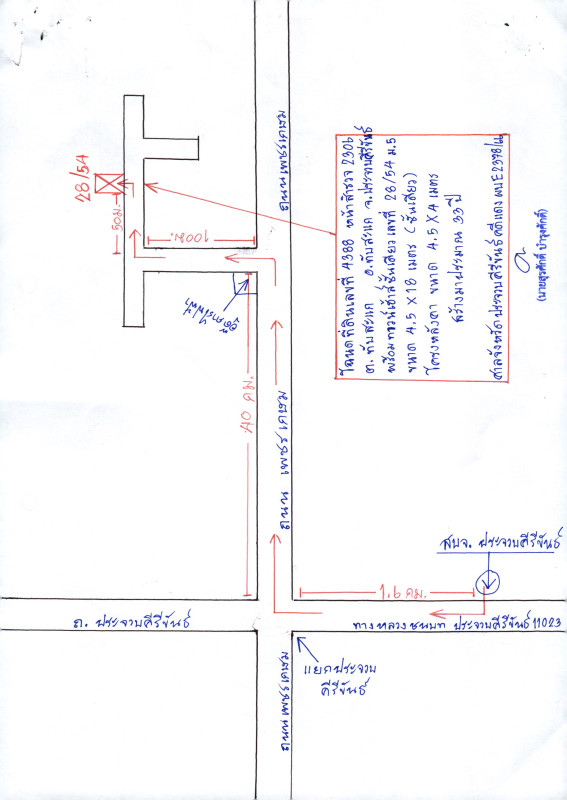 โฉนดที่ดินเลขที่ 4388 หน้าสำรวจ 2306
ต. ทับสะแก อ. ทับสะแก จ. ประจวบคีรีขันธ์
พร้อมทาวน์เฮ้าส์ชั้นเดียว เลขที่ 28/54 ม.5
ขนาด 4.5 X 18 เมตร (ชั้นเดียว)
โครงหลังคา ขนาด 4.5 X 4 เมตร
สร้างมาประมาณ 33 ปี
ศาลจังหวัดประจวบคีรีขันธ์ คดีแดง ผบE2378/
(นายสุรศักดิ์ บำรุงศักดิ์)
28/54
50ม.
100ม.
40 กม.
ถนนเพชรเกษม
ถนน เพชรเกษม
ถนนเพชรเกษม
สบจ. ประจวบคีรีขันธ์
1.6 กม.
ถ. ประจวบคีรีขันธ์
ทางหลวงชนบท ประจวบคีรีขันธ์ 11023
แยกประจวบ
คีรีขันธ์